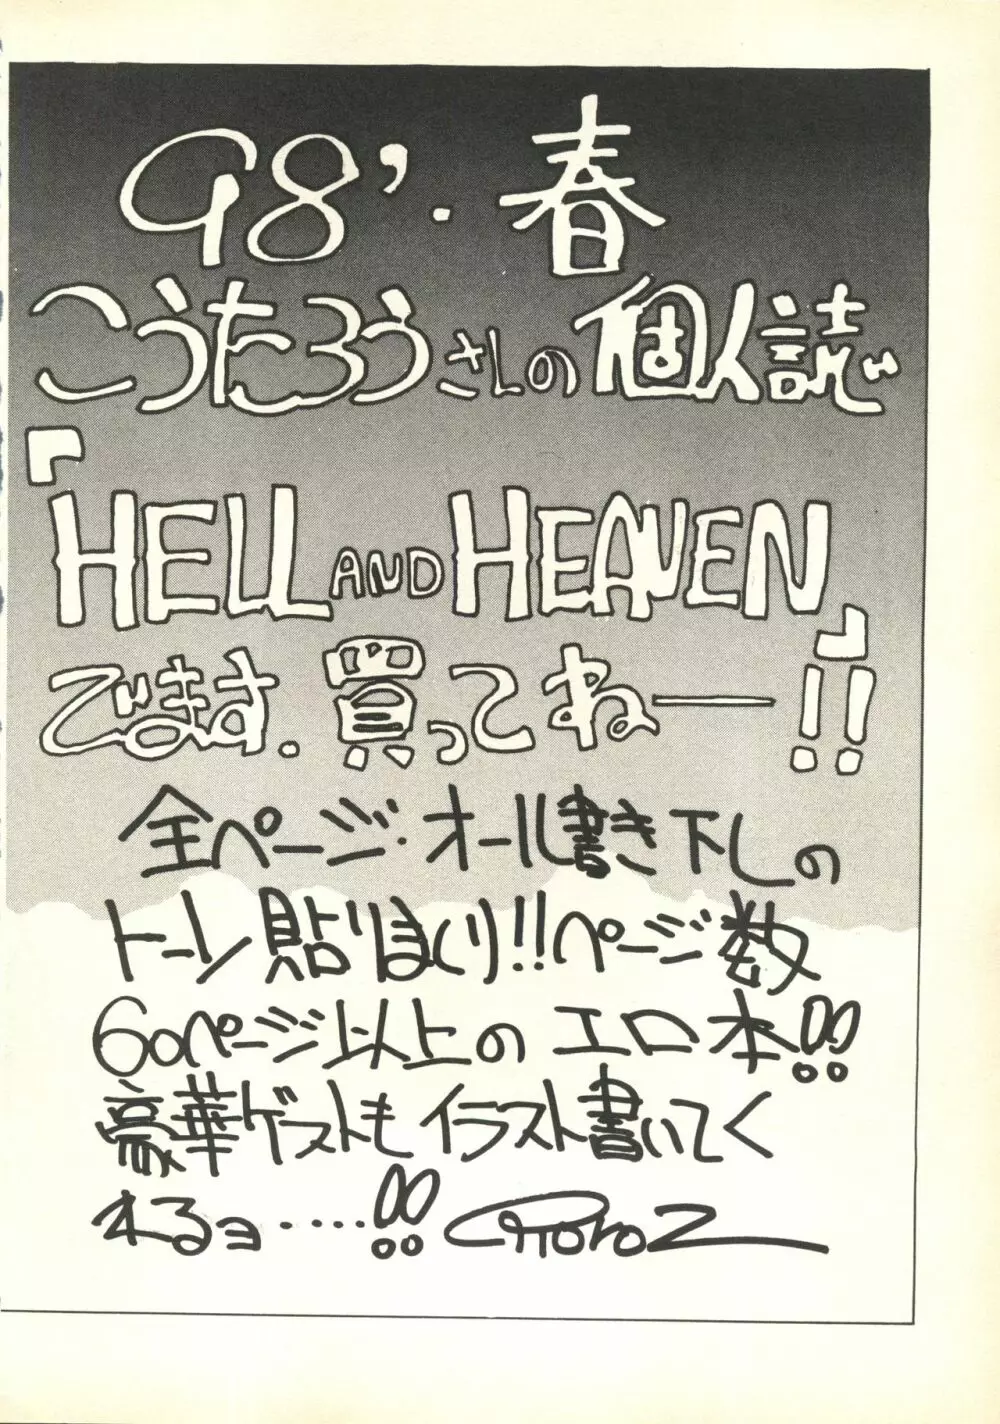 98'・春
こうたろうさんの個人誌が
『HELL AND HEAVEN』
でます。買ってねー!!
全ページ・オール書き下しの
トーン貼りまくり!!ページ数
60ページ以上のエロ本!!
豪華ゲストもイラスト書いてく
れるヨ・・・・!!